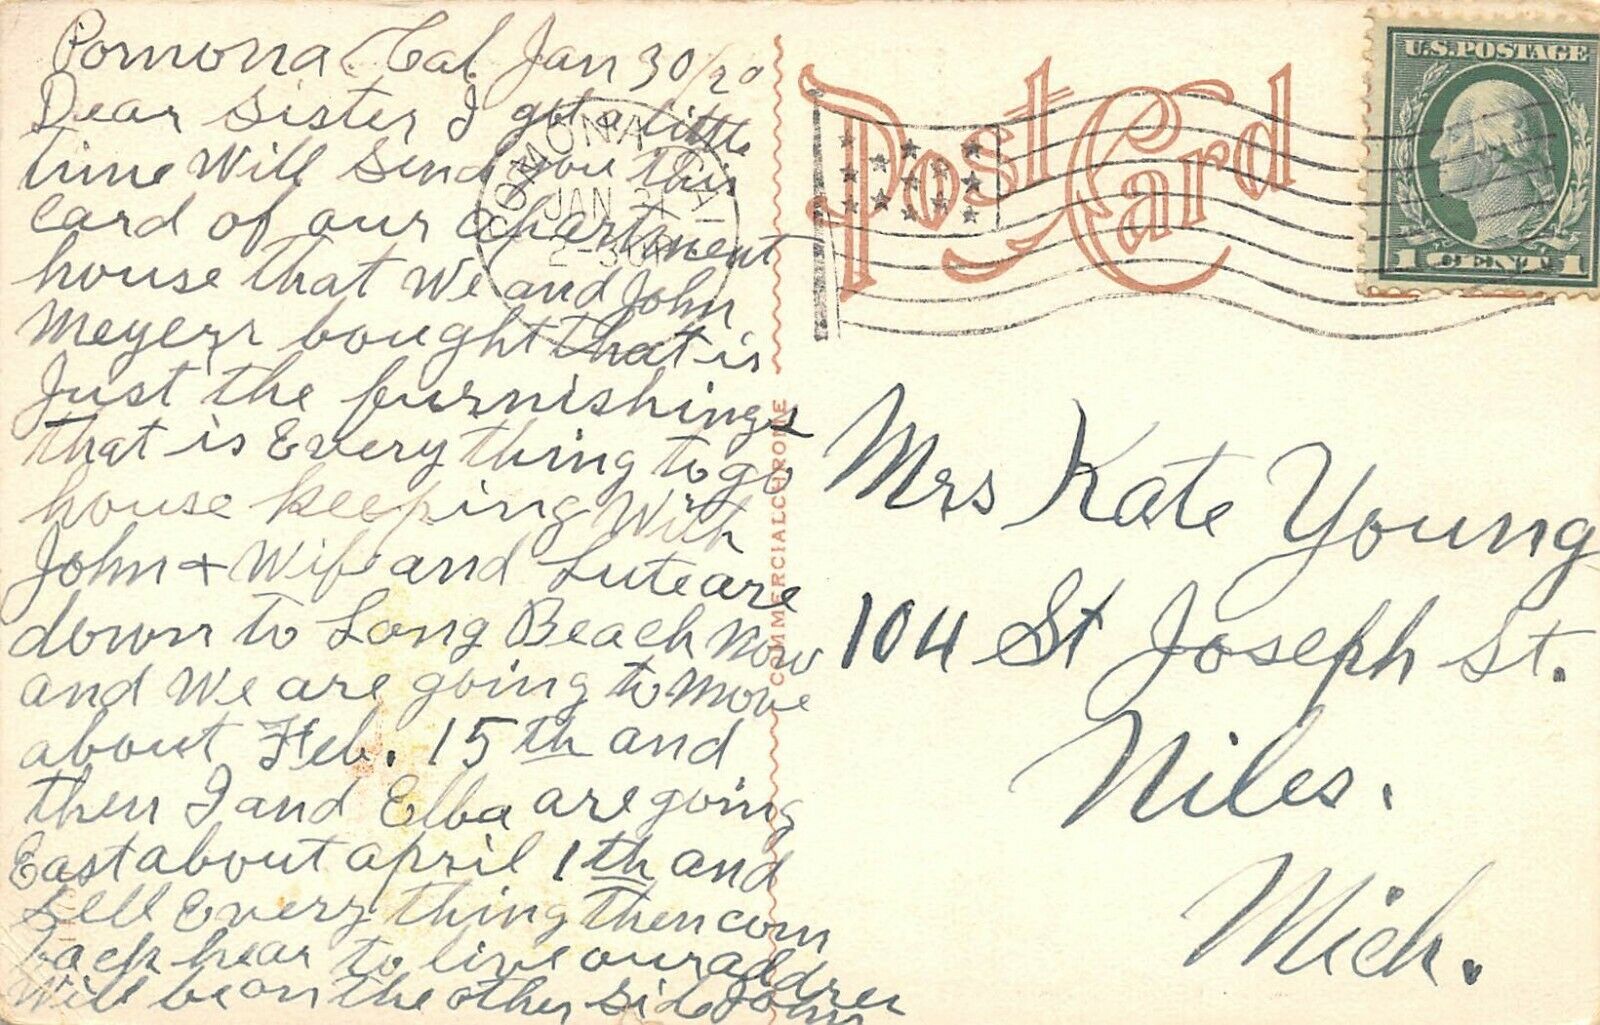 Pomona Cal. Jan 30/20
Dear Sister I got a little
time Will Send you this
card of our apartment
house that We and John
Meyers bought that is
Just the furnishings
that is Every thing to go
house keeping With
John + Wife and Lute are
down to Long Beach Now
and We are going to Move
about Feb. 15th and
then I and Elba are going
East about april 1th and
Sell Every thing then com
back hear to live our addres
Will be on the other side
POMONA, CAL
JAN 31
2-30 PM
Post Card
U.S. POSTAGE
1 CENT 1
COMMERCIALCHROME
Mrs Kate Young
104 St Joseph St.
Niles.
Mich.